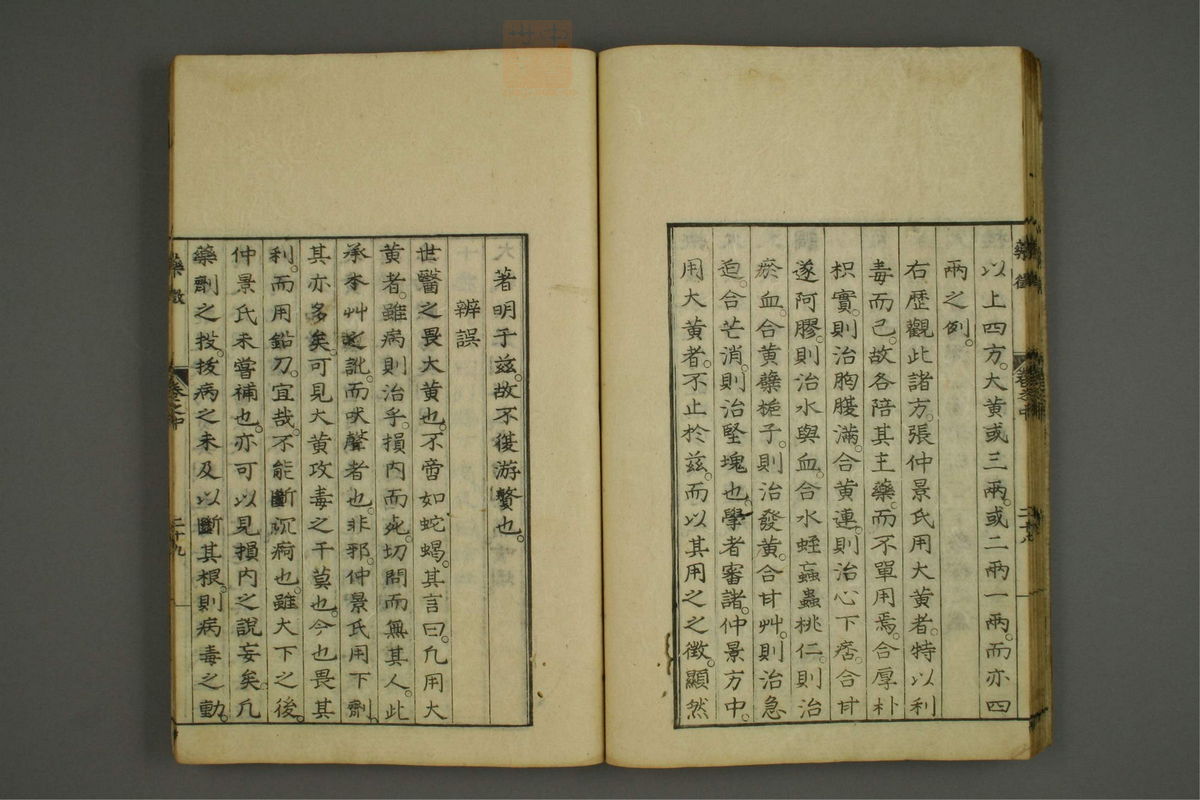 以上四方。大黃或三兩。或二兩一兩。而亦四
兩之例。
右歷觀此諸方。張仲景氏用大黃者。特以利
毒而已。故各陪其主藥。而不單用焉。合厚朴
枳實。則治胸腹滿。合黃連。則治心下痞。合甘
遂阿膠。則治水與血。合水蛭䖟蟲桃仁。則治
瘀血。合黃蘗梔子。則治發黃。合甘艸。則治急
迫。合芒消。則治堅塊也。學者審諸。仲景方中。
用大黃者。不止於茲。而以其用之之徵。顯然
藥徵
卷之中
二十八
大著明于茲。故不復游贅也。
辨誤
世醫之畏大黃也。不啻如蛇蝎。其言曰。凡用大
黃者。雖病則治乎。損內而死。切問而無其人。此
承本艸之訛。而吠聲者也。非邪。仲景氏用下劑。
其亦多矣。可見大黃攻毒之干莫也。今也畏其
利。而用鉛刀。宜哉。不能斷沉痾也。雖大下之後。
仲景氏未嘗補也。亦可以見損內之說妄矣。凡
藥劑之投。拔病之未及以斷其根。則病毒之動。
藥徵
卷之中
二十九